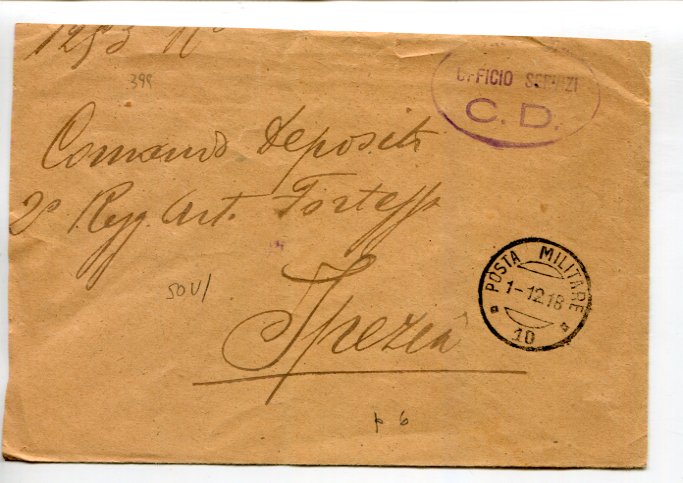 1253 No
399
UFFICIO SERVIZI
C. D.
Comando Deposito
2o Regg. Art. Fortezza
POSTA MILITARE
1-12.18
10
50 U/
Spezia
p 6